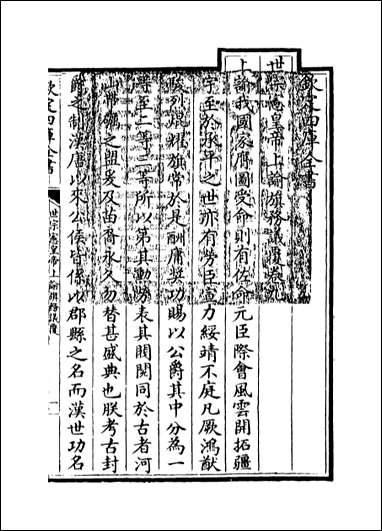 欽定四庫全書
世宗憲皇帝上諭旗務議覆卷九
上諭我國家膺圖受命則有佐命元臣際會風雲開拓疆
宇至於承平之世亦有勞臣宣力綏靖不庭凡厥鴻猷
駿烈焜耀旗常於是酬庸奨功賜以公爵其中分為一
等至二等三等所以第其勳勞表其閥閱同於古者河
山帶礪之盟爰及苗裔永久勿替甚盛典也朕考古封
爵之制漢唐以來公侯皆係以郡縣之名而漢世功名
欽定四庫全書
世宗憲皇帝上諭旗務議覆